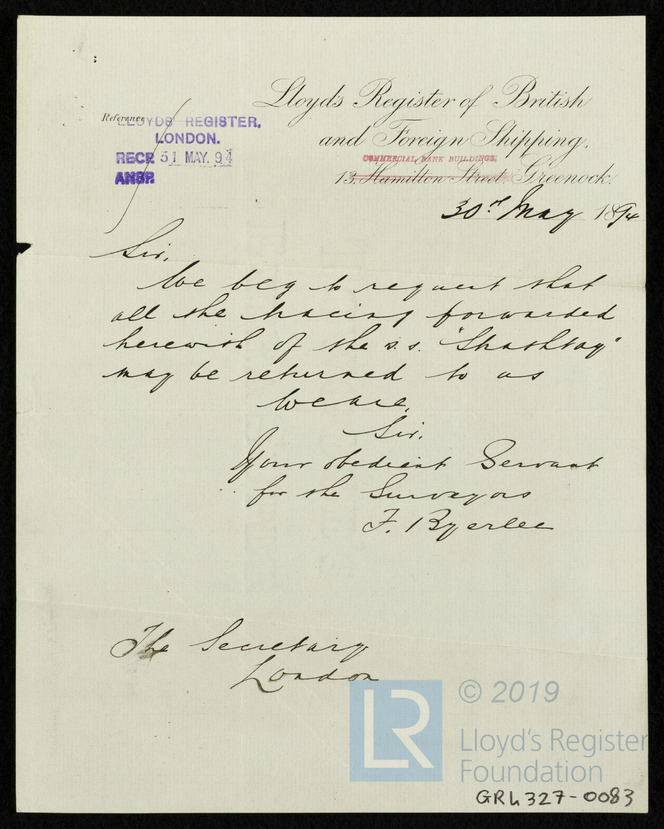 Lloyd's Register of British
and Foreign Shipping,
Reference
LLOYDS REGISTER,
LONDON.
RECD 31 MAY. 94
ANSD
COMMERCIAL BANK BUILDINGS,
13, Hamilton Street, Greenock.
30th May 1894
Sir,
We beg to request that
all the tracing forwarded
herewith of the s.s. "Shashtay"
may be returned to us
We are,
Sir,
Your obedient Servant
for the Surveyors
F. Byerlee
The Secretary
London
LR
© 2019
Lloyd's Register
Foundation
GRK327-0083